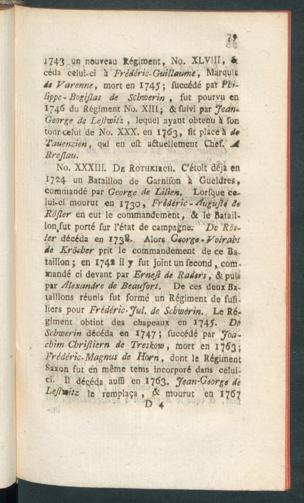 1743 un nouveau Régiment, No. XLVIII, &
céda celui-ci à Frédéric-Guillaume, Marquis
de Varenne, mort en 1745; succédé par Phi-
lippe-Bogislas de Schwerin, fut pourvu en
1746 du Régiment No. XIII; & suivi par Jean-
George de Leſtwitz, lequel ayant obtenu à ſon
tour celui de No. XXX. en 1763, fit place à de
Tauenzien, qui en eſt actuellement Chef. A
Breſlau.
No. XXXIII. DE ROTHKIRCH. C'étoit déjà en
1724 un Bataillon de Garniſon à Gueldres,
commandé par George de Lilien. Lorſque ce-
lui-ci mourut en 1730, Frédéric-Auguſte de
Röſler en eut le commandement, & le Batail-
lon fut porté ſur l'état de campagne. De Röſ-
ler décéda en 1738. Alors George-Voirabt
de Kröcher prit le commandement de ce Ba-
taillon; en 1741 il y fut joint un ſecond, com-
mandé ci devant par Erneſt de Raders, & puis
par Alexandre de Beaufort. De ces deux Ba-
taillons réunis fut formé un Régiment de fuſi-
liers pour Frédéric-Jul. de Schwerin. Le Ré-
giment obtint des chapeaux en 1745. De
Schwerin décéda en 1747; succédé par Joa-
chim Chriſtiern de Treskow, mort en 1763;
Frédéric-Magnus de Horn, dont le Régiment
Saxon fut en même tems incorporé dans celui-
ci. Il décéda auſſi en 1763. Jean-George de
Leſtwitz le remplaça, & mourut en 1767
D 4